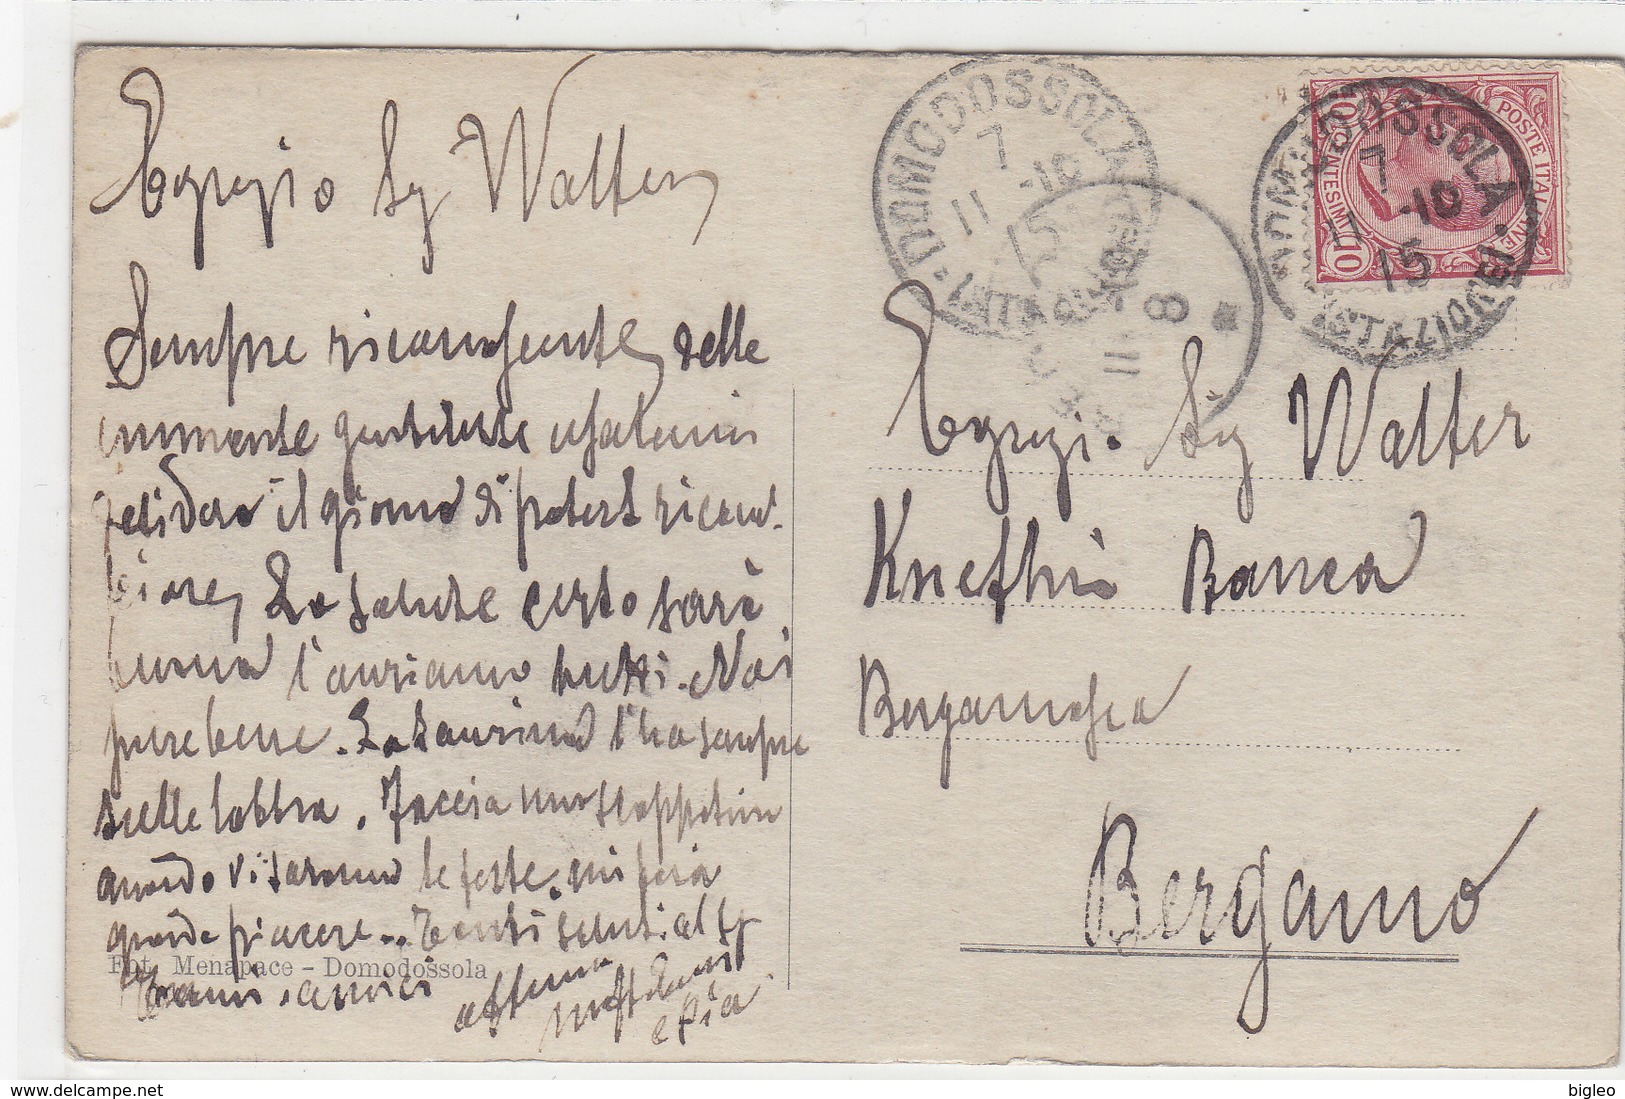 Egregio Sig Walter
Sempre riconoscente delle
immense gentilezze usatemi
desidero il giorno di poterle ricam-
biare, La salute certo sarà
buona l'auriamo tutti. Noi
pure bene. La Taurina l'ha sempre
sulle labbra. Faccia una scappatina
quando vi saranno le feste. mi farà
grande piacere... Tanti saluti al Sig
amici
e Pia
Fot. Menapace - Domodossola
DOMODOSSOLA
7
11 -10
15
8
11
POSTE ITALIANE
CENTESIMI 10
10
DOMODOSSOLA
7
11 -10
15
(STAZIONE)
Egregi. Sig Walter
Banca
Bergamasca
Bergamo
delcampe.net
bigleo